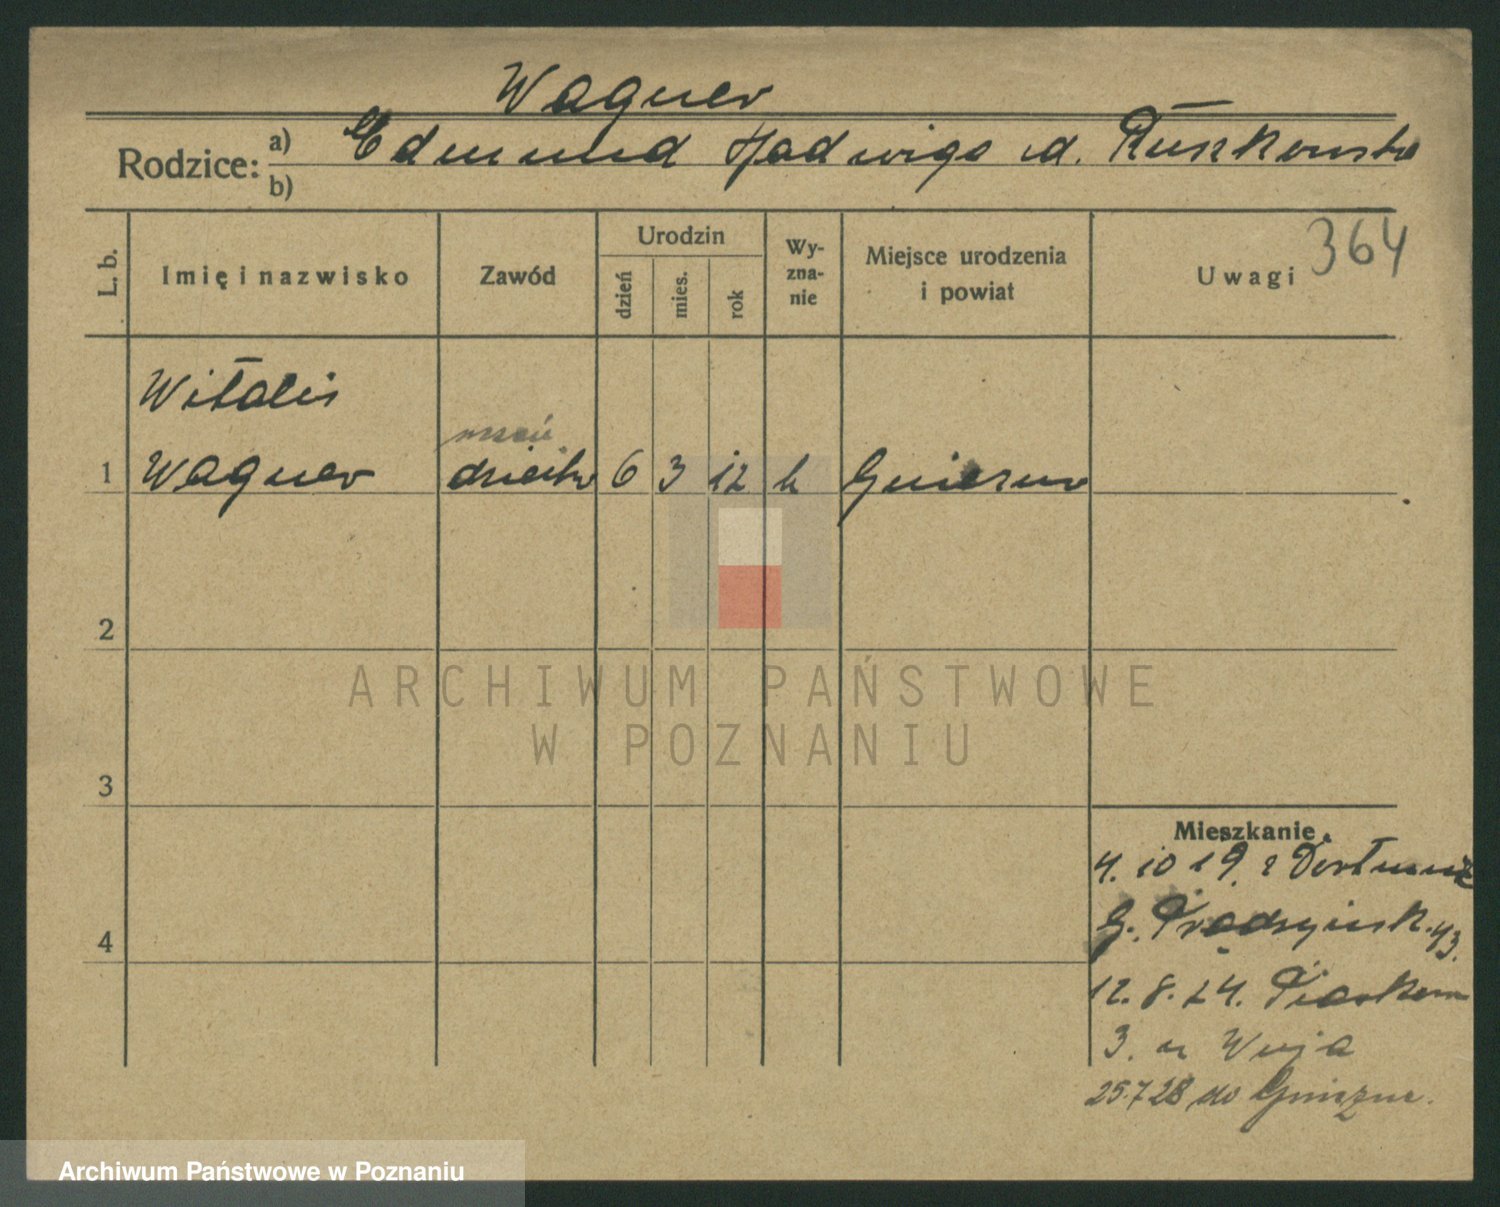 Wagner
Rodzice: a) Edmund Hadwiga d. Ruszkowska
b)
L. b. Imię i nazwisko Zawód Urodzin dzień mies. rok Wy-zna-nie Miejsce urodzenia i powiat Uwagi 364
Witalis
1 Wagner dziecko 6 3 12 k Gniezno
2
3
4
Mieszkanie
4. 10 19. z Dortmund
G. 43.
12. 8. 24. Piaskowa
3. u Wuja
25.7 28 do Gniezna.
ARCHIWUM PAŃSTWOWE
W POZNANIU
Archiwum Państwowe w Poznaniu